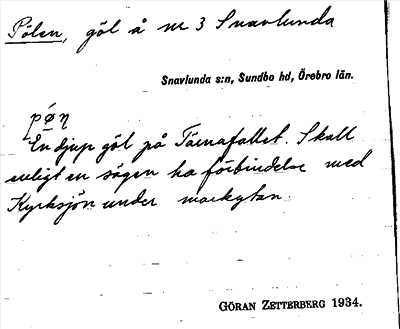 Pölen, göl å nr 3 Snavlunda
Snavlunda s:n, Sundbo hd, Örebro län.
pø̄η
En djup göl på Tärnafallet. Skall
enligt en sägen ha förbindelse med
Kyrksjön under markytan.
GÖRAN ZETTERBERG 1934.